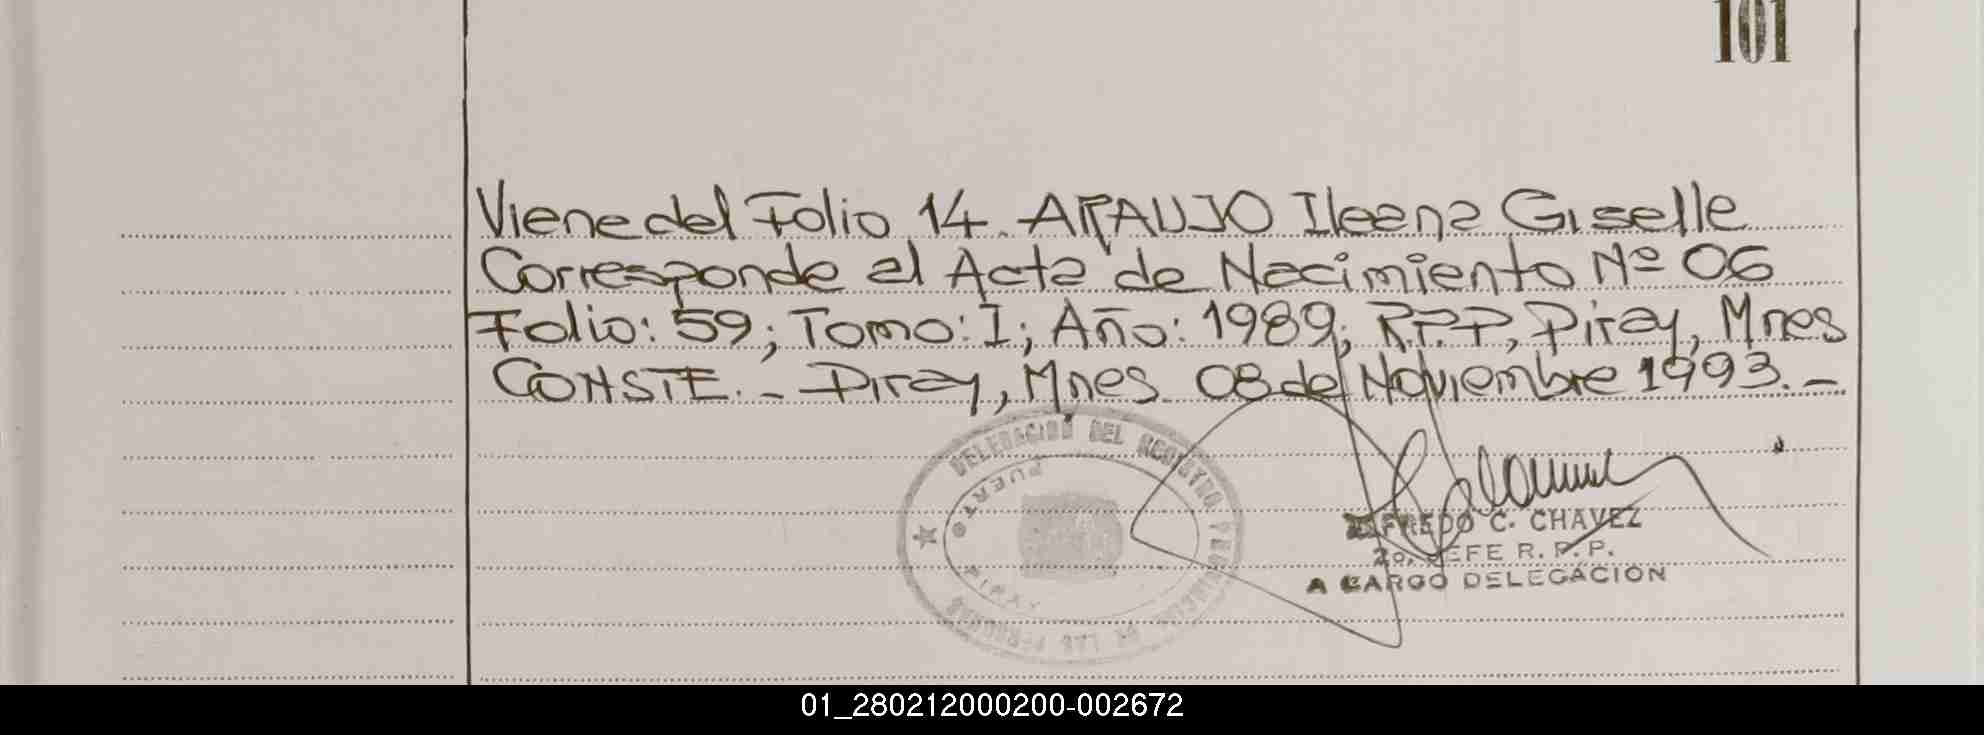 101
Viene del Folio 14. ARAUJO Ileana Giselle
Corresponde al Acta de Nacimiento Nº 06
Folio: 59; Tomo: I; Año: 1989; R.P.P, Piray, Mnes
CONSTE. - Piray, Mnes 08 de Noviembre 1993. -
DELEGACION DEL REGISTRO PROVINCIAL DE LAS PERSONAS
PUERTO
PIRAY
ALFREDO C. CHAVEZ
2o. JEFE R. P. P.
A CARGO DELEGACION
01_280212000200-002672